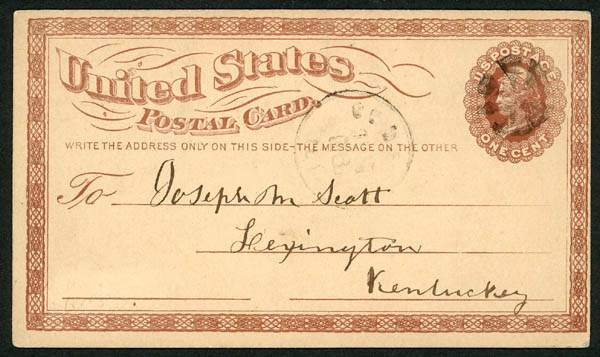 United States
POSTAL CARD.
U.S. POSTAGE
ONE CENT
WRITE THE ADDRESS ONLY ON THIS SIDE-THE MESSAGE ON THE OTHER
To Joseph M Scott
Lexington
Kentuckey